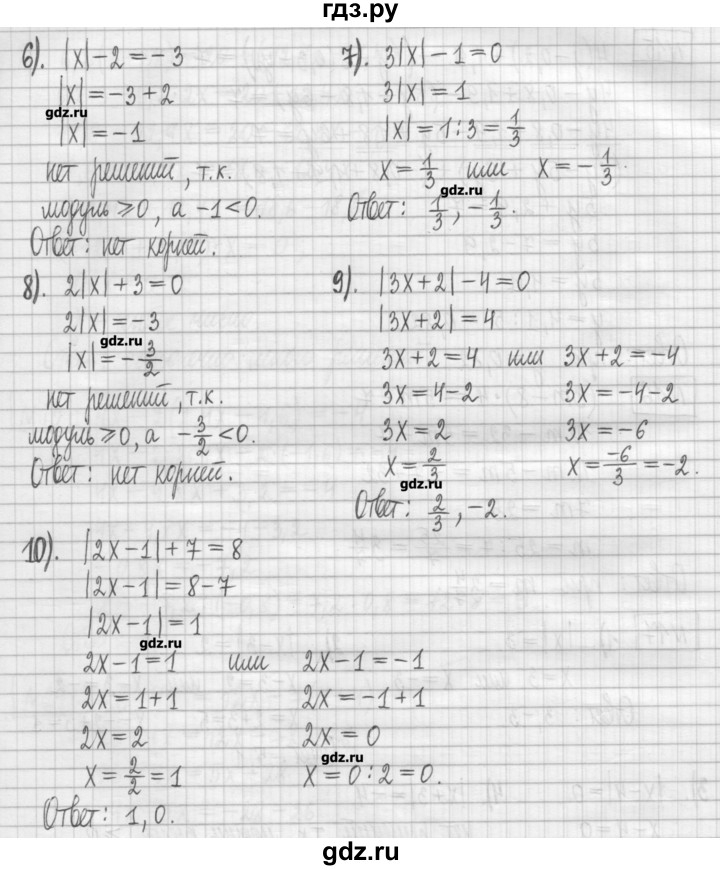 гдз.ру
6). |x| − 2 = −3
|x| = −3 + 2
gdz.ru
|x| = −1
нет решений, т.к.
модуль ≥ 0, а −1 < 0.
Ответ: нет корней.
7). 3|x| − 1 = 0
3|x| = 1
|x| = 1 : 3 = 1/3
x = 1/3 или x = −1/3.
gdz.ru
Ответ: 1/3, −1/3.
8). 2|x| + 3 = 0
2|x| = −3
gdz.ru
|x| = −3/2
нет решений, т.к.
модуль ≥ 0, а −3/2 < 0.
Ответ: нет корней.
9). |3x + 2| − 4 = 0
|3x + 2| = 4
3x + 2 = 4 или 3x + 2 = −4
3x = 4 − 2 3x = −4 − 2
3x = 2 3x = −6
x = 2/3 x = −6/3 = −2.
gdz.ru
Ответ: 2/3, −2.
10). |2x − 1| + 7 = 8
|2x − 1| = 8 − 7
|2x − 1| = 1
gdz.ru
2x − 1 = 1 или 2x − 1 = −1
2x = 1 + 1 2x = −1 + 1
2x = 2 2x = 0
gdz.ru
x = 2/2 = 1 x = 0 : 2 = 0.
Ответ: 1, 0.
gdz.ru